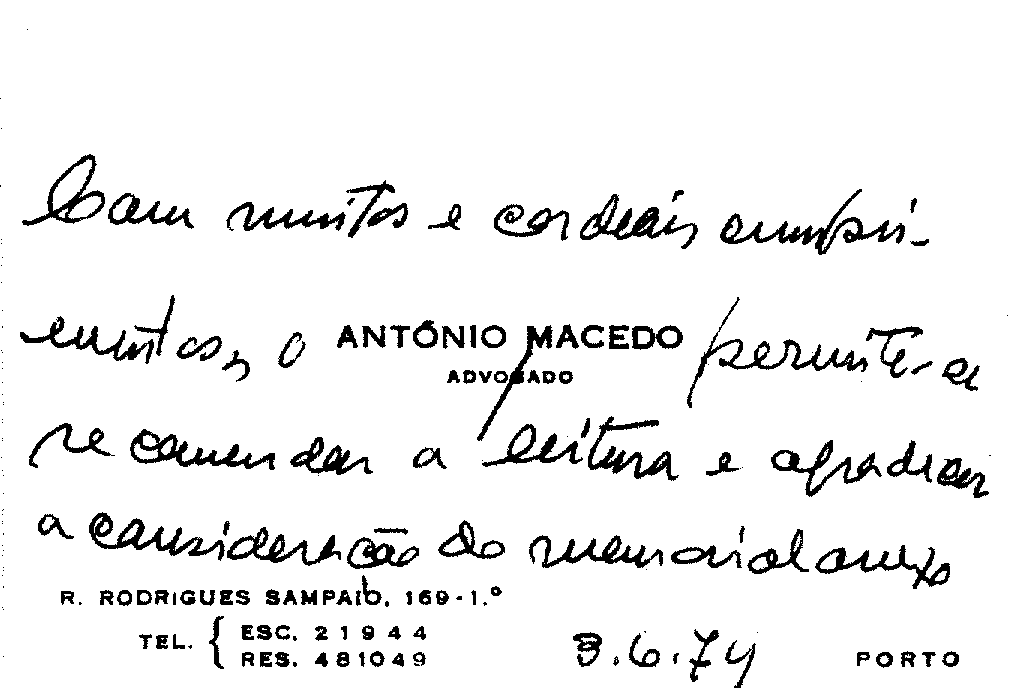 Com muitos e cordeais cumpri-
mentos, o ANTÓNIO MACEDO permite-se
ADVOGADO
recomendar a leitura e agradecer
a consideração do memorial anexo
R. RODRIGUES SAMPAIO, 169-1.º
TEL. { ESC. 21944
RES. 481049
3.6.74 PORTO